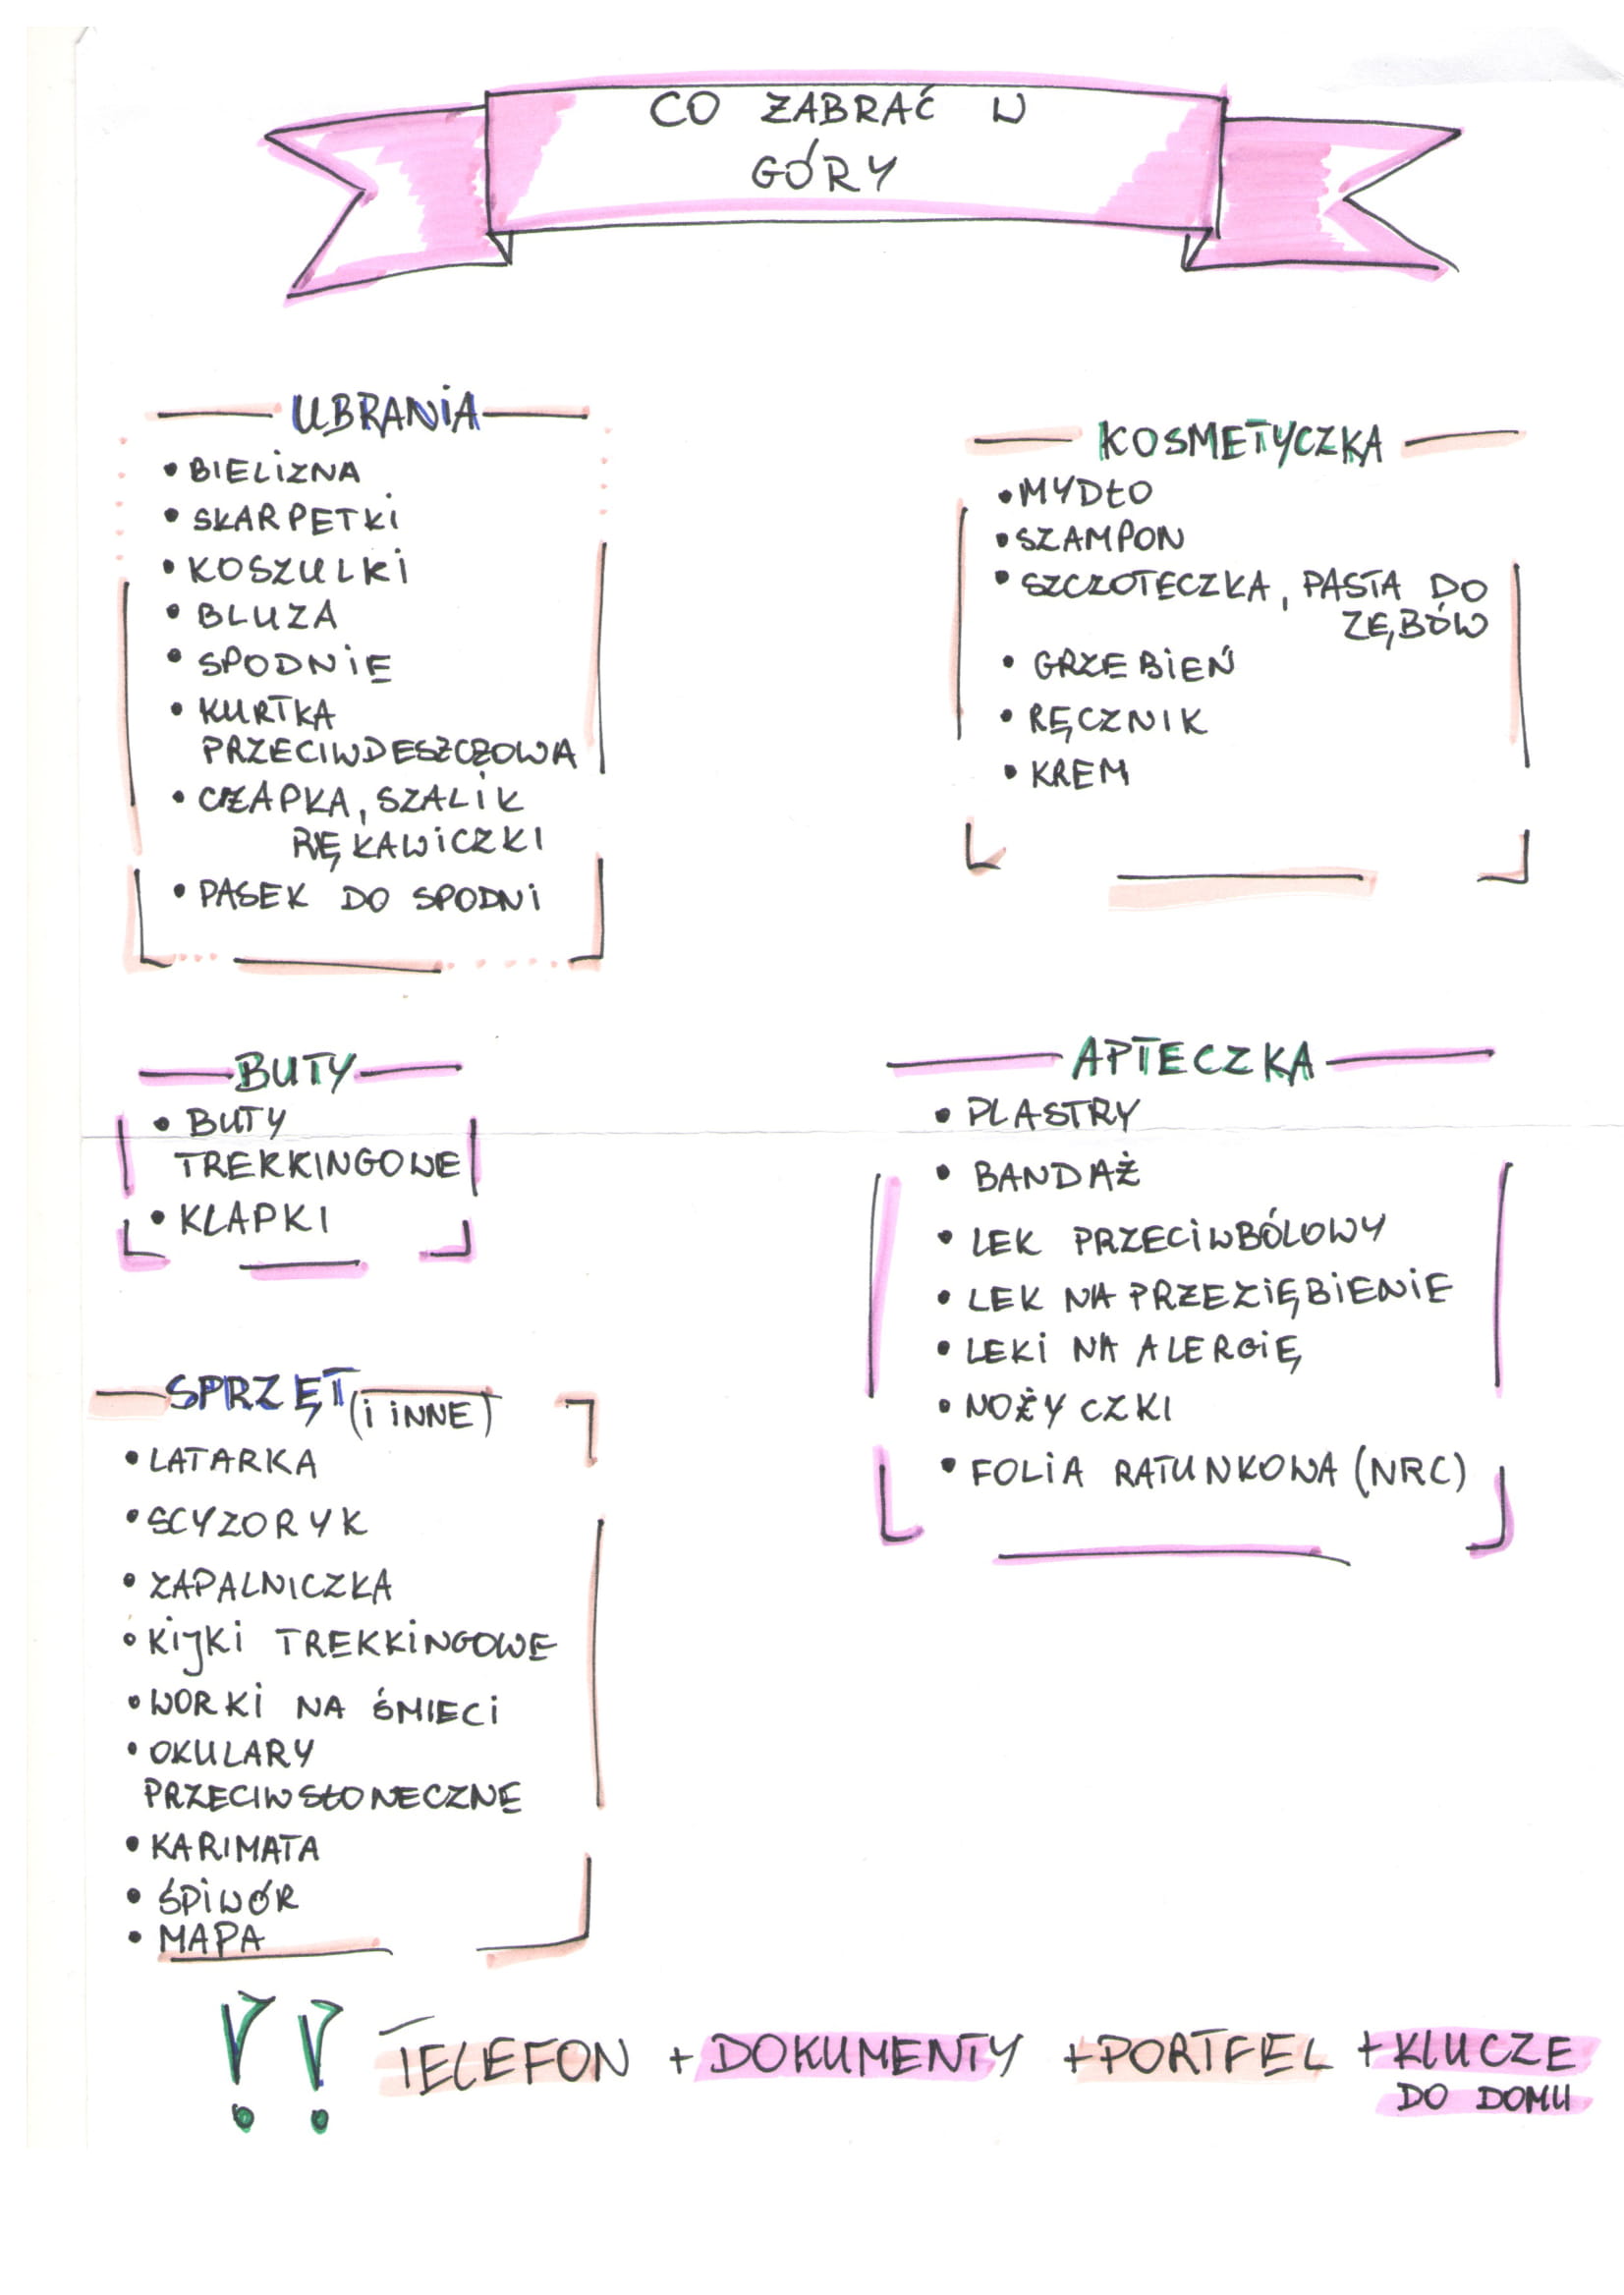 CO ZABRAĆ W
GÓRY
UBRANIA
• BIELIZNA
• SKARPETKI
• KOSZULKI
• BLUZA
• SPODNIE
• KURTKA
PRZECIWDESZCZOWA
• CZAPKA, SZALIK
RĘKAWICZKI
• PASEK DO SPODNI
KOSMETYCZKA
• MYDŁO
• SZAMPON
• SZCZOTECZKA, PASTA DO
ZĘBÓW
• GRZEBIEŃ
• RĘCZNIK
• KREM
BUTY
• BUTY
TREKKINGOWE
• KLAPKI
APTECZKA
• PLASTRY
• BANDAŻ
• LEK PRZECIWBÓLOWY
• LEK NA PRZEZIĘBIENIE
• LEKI NA ALERGIĘ
• NOŻYCZKI
• FOLIA RATUNKOWA (NRC)
SPRZĘT (I INNE)
• LATARKA
• SCYZORYK
• ZAPALNICZKA
• KIJKI TREKKINGOWE
• WORKI NA ŚMIECI
• OKULARY
PRZECIWSŁONECZNE
• KARIMATA
• ŚPIWÓR
• MAPA
!! TELEFON + DOKUMENTY + PORTFEL + KLUCZE
DO DOMU